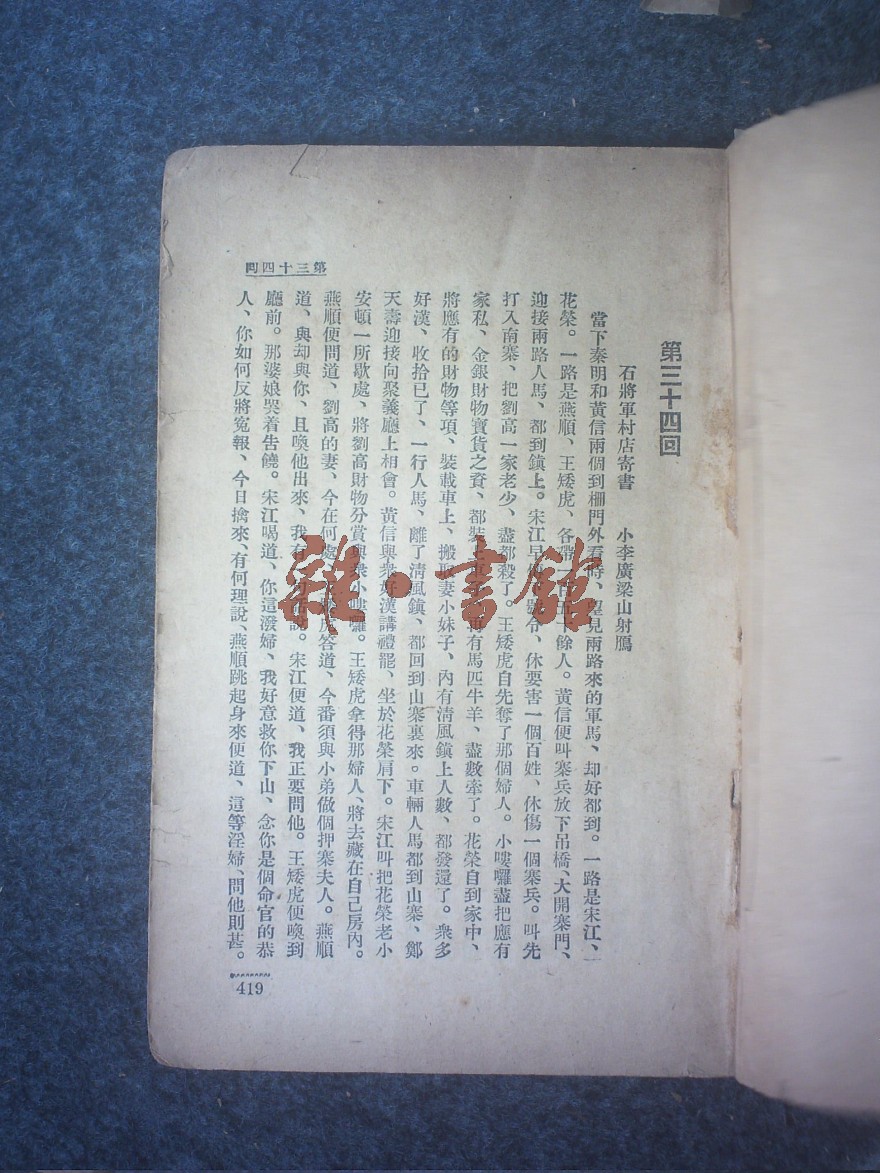 第三十四回
石將軍村店寄書　小李廣梁山射鴈
當下秦明和黃信兩個到柵門外看時、望見兩路來的軍馬、却好都到。一路是宋江、
花榮。一路是燕順、王矮虎、各帶一百五十餘人。黃信便叫寨兵放下吊橋、大開寨門、
迎接兩路人馬、都到鎮上。宋江早傳下號令、休要害一個百姓、休傷一個寨兵。叫先
打入南寨、把劉高一家老少、盡都殺了。王矮虎自先奪了那個婦人。小嘍囉盡把應有
家私、金銀財物寶貨之資、都裝上車子、再有馬匹牛羊、盡數牽了。花榮自到家中、
將應有的財物等項、裝載車上、搬取妻小妹子、內有清風鎮上人數、都發還了。衆多
好漢、收拾已了、一行人馬、離了清風鎮、都回到山寨裏來。車輛人馬都到山寨、鄭
天壽迎接向聚義廳上相會。黃信與衆好漢講禮罷、坐於花榮肩下。宋江叫把花榮老小
安頓一所歇處、將劉高財物分賞與衆小嘍囉。王矮虎拿得那婦人、將去藏在自己房內。
燕順便問道、劉高的妻、今在何處、王矮虎答道、今番須與小弟做個押寨夫人。燕順
道、與却與你、且喚他出來、我有一句話說。宋江便道、我正要問他。王矮虎便喚到
廳前。那婆娘哭着告饒。宋江喝道、你這潑婦、我好意救你下山、念你是個命官的恭
人、你如何反將寃報、今日擒來、有何理說、燕順跳起身來便道、這等淫婦、問他則甚。
第三十四回
419
雜·書館